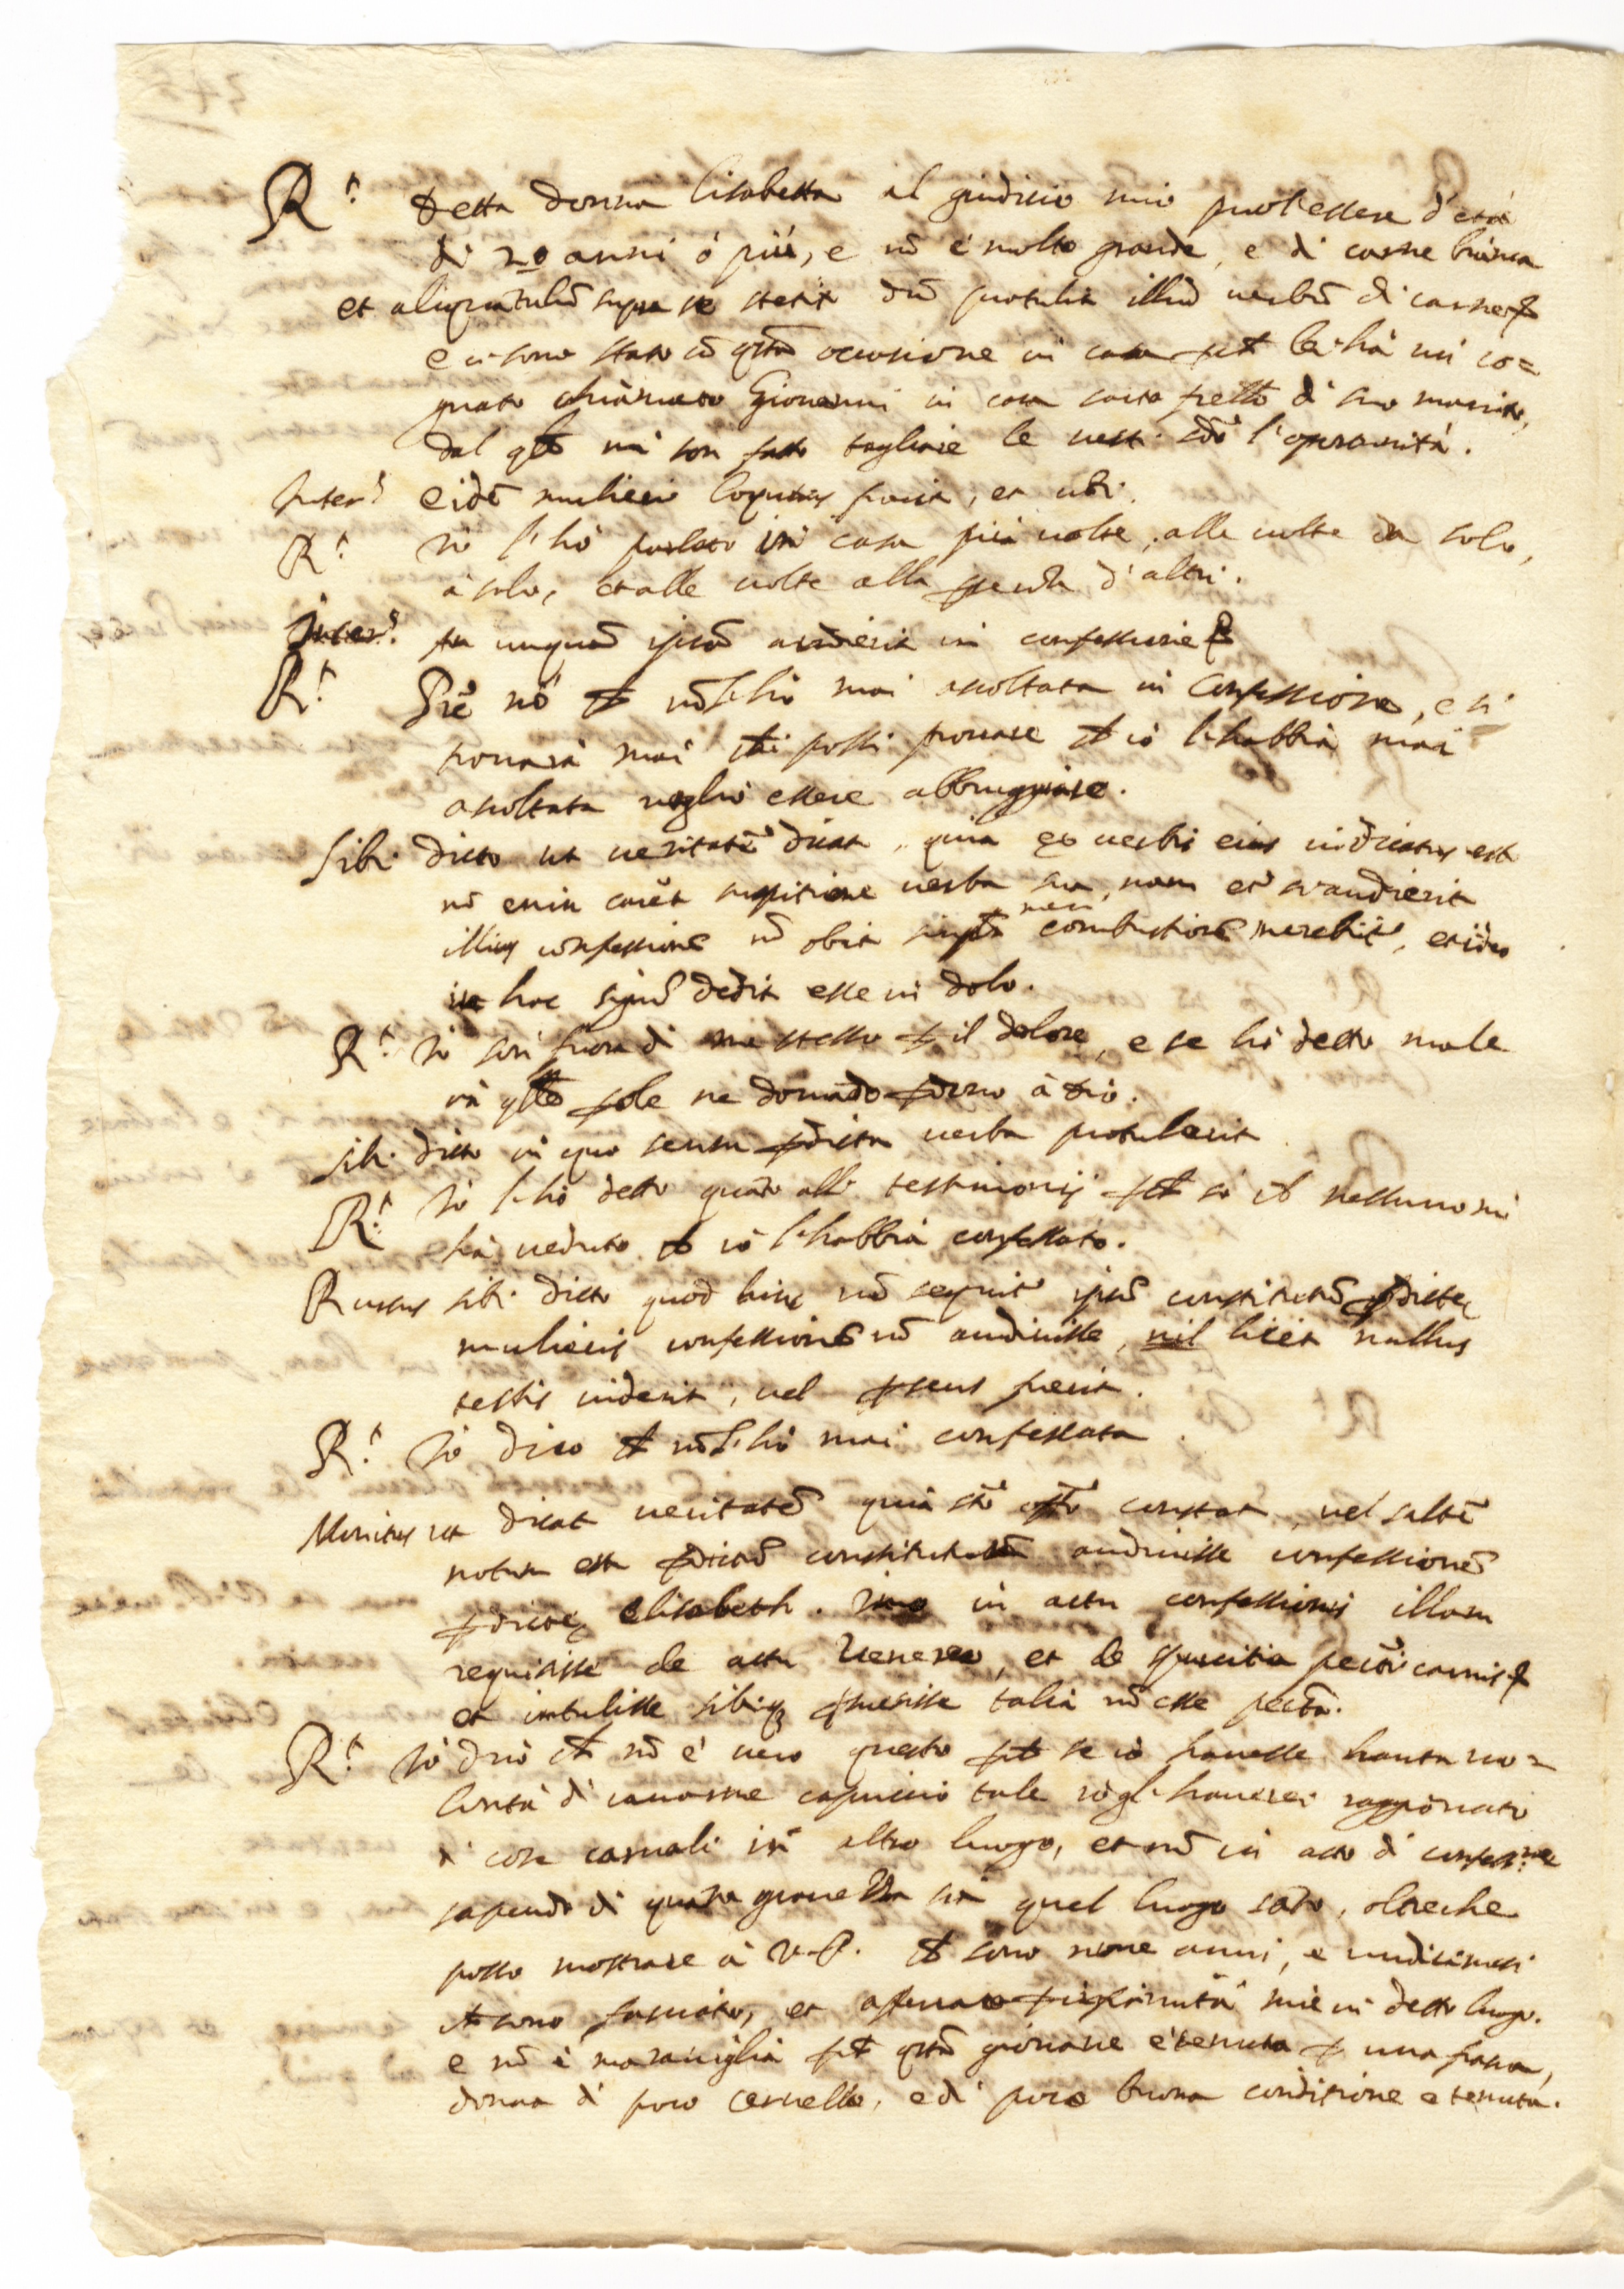 R.t Detta donna lisabetta al giuditio mio puol essere d'età
di 20 anni ò più, e nō è molto grande, e di carne bianca
et aliquātulū supra se stetit dū protulit illud verbū di carne
e ci sono stato cō q̄sta occasione in casa p̄ch lei hà un co=
gnato chiamato Giovanni in casa fr̄ello di suo marito,
dal q̄le mi son fatto tagliare le vesti l'oportunità.
Inter.s eidē mulieri loquutus fuerit, et ubi.
R.t Io l'hò parlato in casa più volte, alle volte da solo,
à solo, et alle volte alla p̄senza d'altri.
Inter.s an unquā ipsā audierit in confessione
R.t Pr̄e nò ch nō l'hò mai ascoltata in Confessione, e si
trovarà mai chi possi provare ch io l'habbia mai
ascoltata voglio essere abbrugiato.
Sibi dicto ut veritatē dicat, quia ex verbis eius indicatus est
nō enim carēt suspitione verba sua, nam et si audierit
illius confessionē nō obid combustionē meretur, et ideo
in hoc signū dedit esse in dolo.
R.t Io son fuora di me stesso p̄ il dolore, e se hò detto male
in q̄ste p̄ole ne domādo p̄dono à Dio.
Sibi dicto in quo sensu p̄dicta verba protulerit
R.t Io l'hò detto quāto alli testimonij p̄ch sò ch nessuno mi
hà veduto ch io l'habbia confessato.
Rursus sibi dicto quod hinc nō sequit ipsū constitutū p̄dictę
mulieris confessionē nō audivisse, nil licet nullus
testis viderit, vel p̄sens fuerit.
R.t Io dico ch nō l'hò mai confessata.
Monitus ut dicat veritatē quia constat, vel saltē
notum est p̄dictū constitutum audivisse confessionē
p̄dictę Elisabeth. Imo in actu confessionis illam
requisisse de actu Venereo, et de peccti carnis
et intulisse sibiq talia nō esse pectā.
R.t Io dico ch nō è vero questo p̄ch se io havesse hauta vo=
lontà di cavarme capriccio tale io gl'haverei raggionato
di cose carnali in altro luogo, et nō in atto di confess.ne
sapendo di quāta gravezza sia quel luogo sāto, oltreche
posso mostrare à V.P. ch sono nove anni, e undici mesi
ch sono fasciato, et p̄ infirmità mie in detto luogo.
e nō è maraviglia p̄ch q̄sta giovane è tenuta p̄ una pazza,
donna di poco cervello, e di poca buona conditione e tenuta.